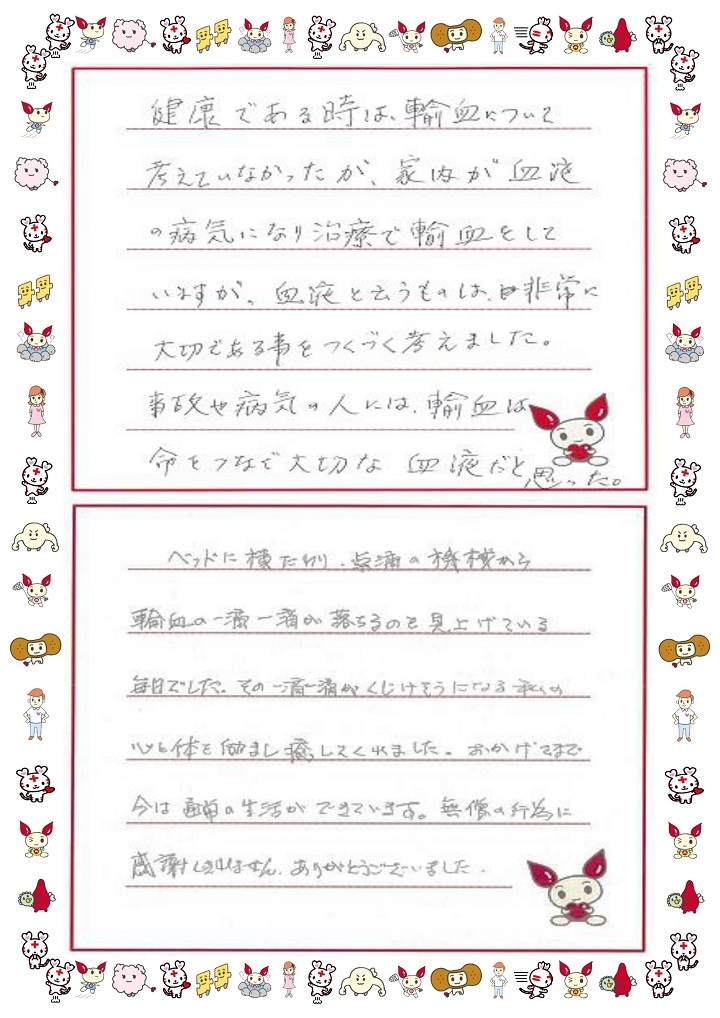 健康である時は、輸血について
考えていなかったが、家内が血液
の病気になり治療で輸血をして
いますが、血液と云うものは、非常に
大切である事をつくづく考えました。
事故や病気の人には、輸血は
命をつなぐ大切な 血液だと思った。
ベッドに横たわり、点滴の機械から
輸血の一滴一滴が落ちるのを見上げている
毎日でした。その一滴一滴がくじけそうになる私の
心と体を励まし癒してくれました。おかげさまで
今は通常の生活ができています。無償の行為に
感謝しきれません。ありがとうございました。